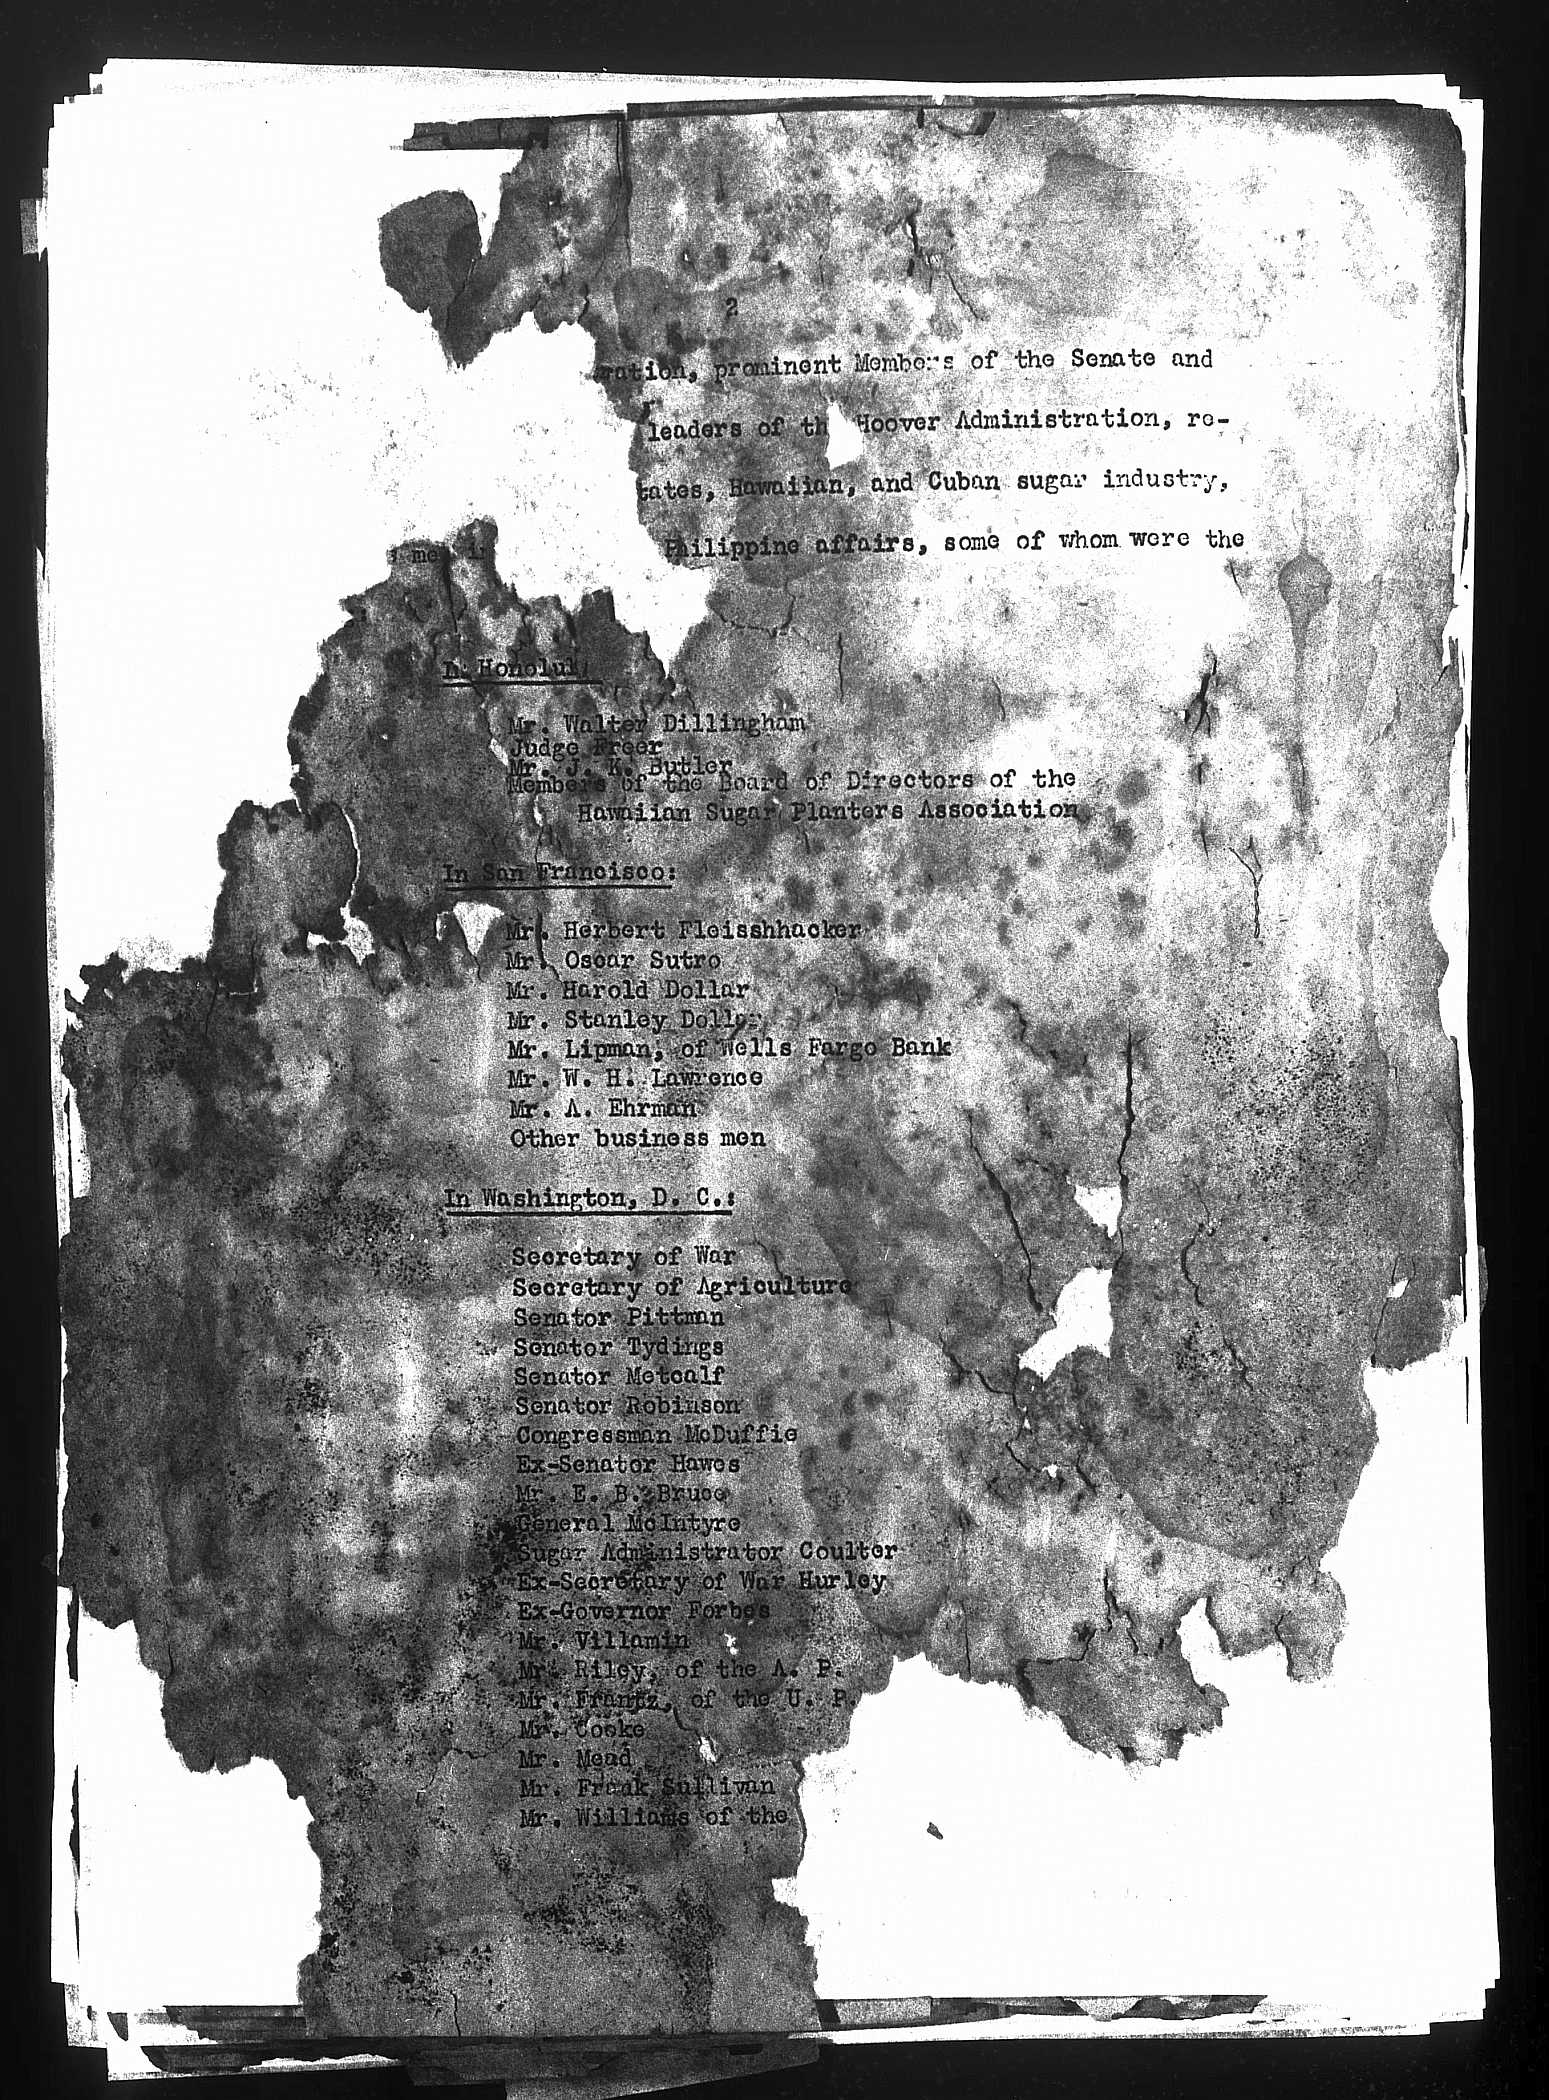 2
ration, prominent Members of the Senate and
leaders of th Hoover Administration, re-
tates, Hawaiian, and Cuban sugar industry,
Philippine affairs, some of whom were the
In Honolul
Mr. Walter Dillingham
Judge Freer
Mr. J. K. Butler
Members of the Board of Directors of the
Hawaiian Sugar Planters Association
In San Francisco:
Mr. Herbert Fleisshhacker
Mr. Oscar Sutro
Mr. Harold Dollar
Mr. Stanley Dollar
Mr. Lipman, of Wells Fargo Bank
Mr. W. H. Lawrence
Mr. A. Ehrman
Other business men
In Washington, D. C.:
Secretary of War
Secretary of Agriculture
Senator Pittman
Senator Tydings
Senator Metcalf
Senator Robinson
Congressman McDuffie
Ex-Senator Hawes
Mr. E. B. Bruce
General McIntyre
Sugar Administrator Coulter
Ex-Secretary of War Hurley
Ex-Governor Forbes
Mr. Villamin
Mr. Riley, of the A. P.
Mr. Frantz, of the U. P.
Mr. Cooke
Mr. Mead
Mr. Frank Sullivan
Mr. Williams of the